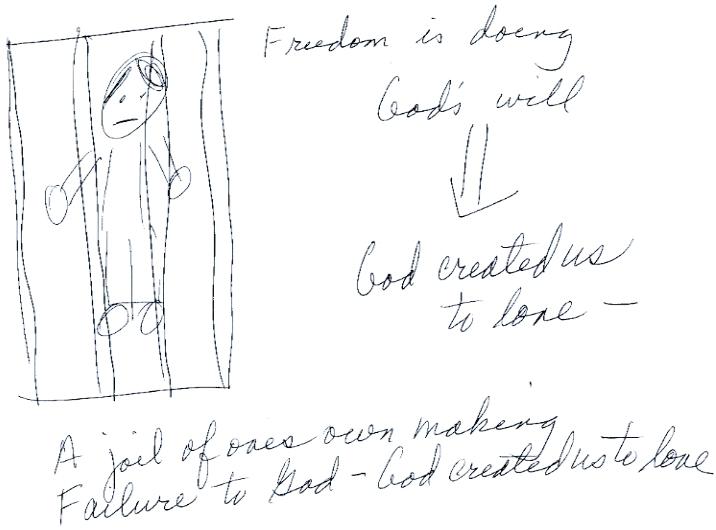 Freedom is doing
God's will
God created us
to love —
A jail of ones own making
Failure to God – God created us to love